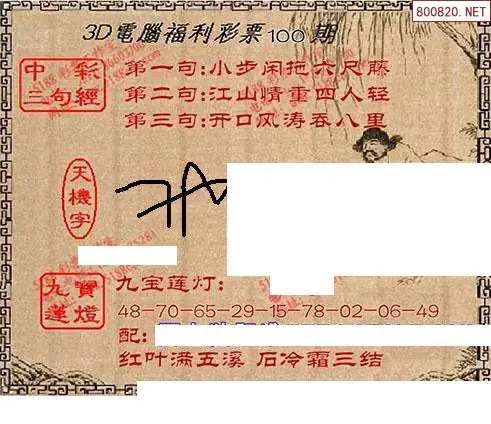 800820.NET
3D電腦福利彩票100期
中彩
三句經
第一句:小步闲拖六尺藤
第二句:江山情重四人轻
第三句:开口风涛吞八里
天機字
九寶
蓮燈
九宝莲灯:
48-70-65-29-15-78-02-06-49
配:
红叶满五溪 石冷霜三结